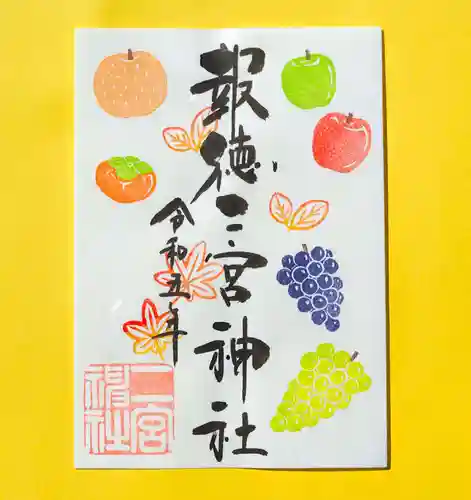 報徳二宮神社
令和五年
二宮神社